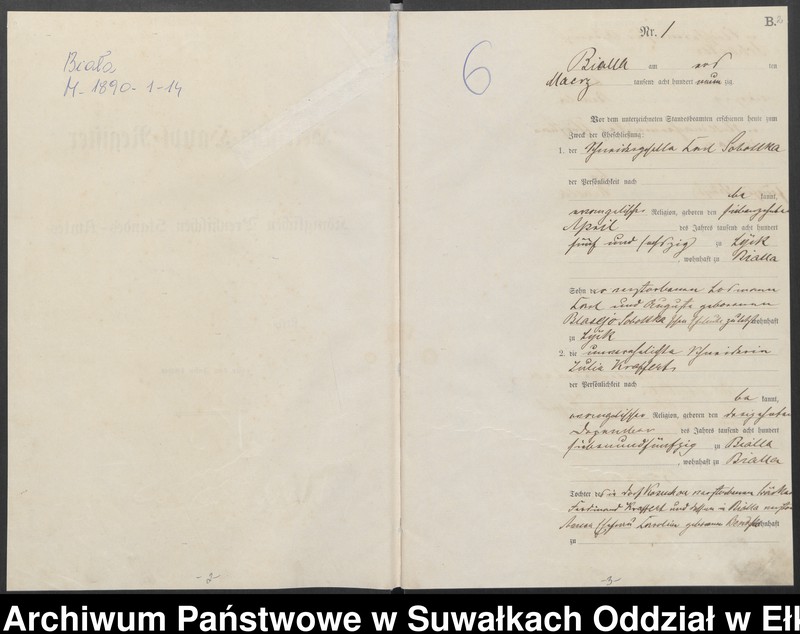 Biała
M-1890-1-14
6
B.
Nr. 1
Bialla am ten
Maerz tausend acht hundert neunzig
Vor dem unterzeichneten Standesbeamten erschienen heute zum
Zweck der Eheschließung:
1. der Schneidergeselle Karl Sobottka
der Persönlichkeit nach
be kannt,
evangelischer Religion, geboren den siebenzehnten
April des Jahres tausend acht hundert
fünf und sechszig zu Lyck
, wohnhaft zu Bialla
Sohn der verstorbenen Losmann
Karl und Auguste geborenen
Sobottka zuletzt wohnhaft
zu Lyck
2. die unverehelichte Schneiderin
Julie Kraffert
der Persönlichkeit nach
be kannt,
evangelischer Religion, geboren den dreizehnten
Dezember des Jahres tausend acht hundert
siebenundfünfzig zu Bialla
, wohnhaft zu Bialla
Tochter des in Dorf verstorbenen
Ferdinand Kraffert und dessen in Bialla
Ehefrau Karoline geborene wohnhaft
zu
- 2 -
- 3 -
Archiwum Państwowe w Suwałkach Oddział w Ełk